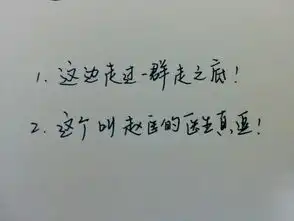 1. 这边走过一群走之底！
2. 这个叫赵匡的医生真逗！